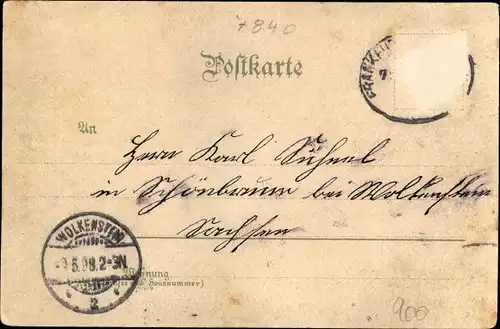 7840
Postkarte
FRANKFURT
7
An
Herrn Karl
in Schönbrunn bei Wolkenstein
Sachsen
WOLKENSTEIN
5.98.2-3N
2
Wohnung
Hausnummer)
900